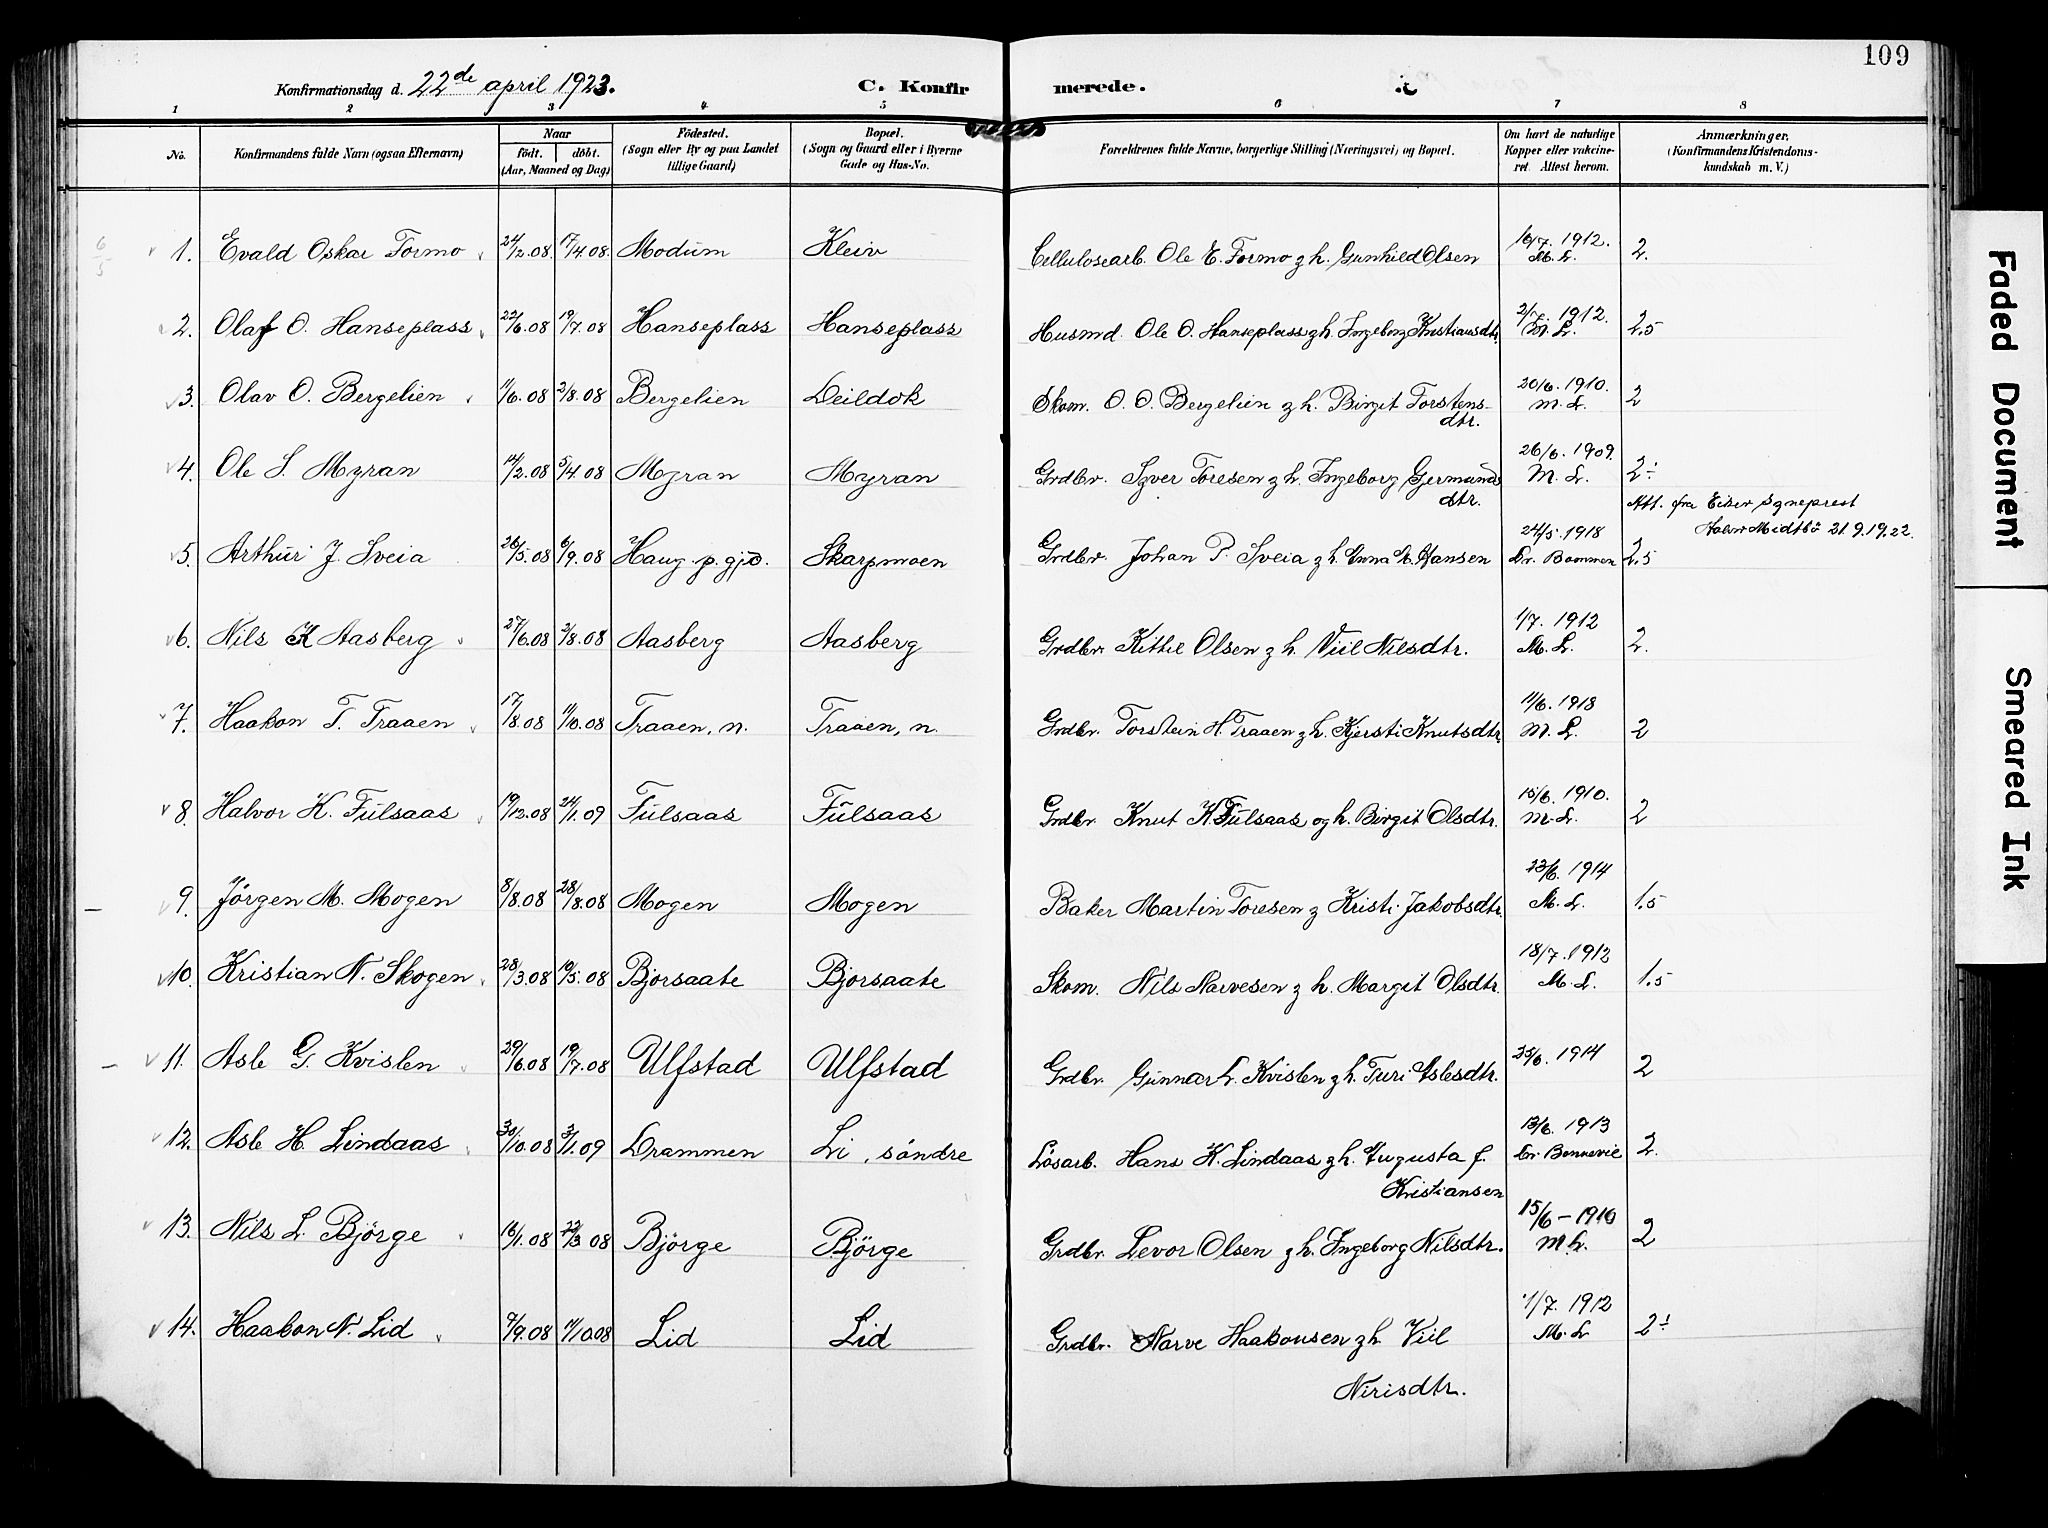 109
Konfirmationsdag d. 22de april 1923. C. Konfirmerede.
1 2 3 4 5 6 7 8
No. Konfirmandens fulde Navn (ogsaa Efternavn) Naar født. døbt. (Aar, Maaned og Dag) Fødested. (Sogn eller By og paa Landet tillige Gaard) Bopæl. (Sogn og Gaard eller i Byerne Gade og Hus-No. Forældrenes fulde Navne, borgerlige Stilling (Næringsvei) og Bopæl. Om havt de naturlige Kopper eller vakcineret. Attest herom. Anmærkninger. (Konfirmandens Kristendomskundskab m. V.)
6/5
1. Evald Oskar Formo 24/2.08 17/4.08. Modum Kleiv Cellulosearb. Ole E. Formo z h. Gunhild Olsen 16/7. 1912. M. L. 2.
2. Olaf O. Hanseplass 22/6.08 19/7.08 Hanseplass Hanseplass Husmd. Ole O. Hanseplass z h. Ingeborg Kristiansdtr. 2/7. 1912. M. L. 2.5
3. Olav O. Bergelien 11/6.08 2/8.08 Bergelien Deildok Skom. O. O. Bergelien z h. Birgit Torstens-
dtr. 20/6. 1910. M. L. 2
4. Ole S. Myran 14/2.08 5/4.08 Myran Myran Grdbr. Syver Toresen z h. Ingeborg Germunds
dtr. 26/6. 1909. M. L. 2÷
Att. fra Eiker sogneprest
Halvor Midtbö 21.9.19.22.
5. Arthur J. Sveia 26/5.08 6/9.08 Haug p. gjö. Skarpmoen Grdbr. Johan P. Sveia z h. Anna Hansen 24/5. 1918 Dr. Bommen 2.5
6. Nils K Aasberg 27/6.08 2/8.08 Aasberg Aasberg Grdbr. Kittil Olsen z h. Viil Nilsdtr. 1/7. 1912 M. L. 2.
7. Haakon T. Traaen 17/8.08 11/10.08 Traaen, n. Traaen, n. Grdbr. Torstein H. Traaen z h. Kjersti Knutsdtr. 11/6. 1918 M. L. 2
8. Halvor K. Fulsaas 19/12.08 24/1.09 Fulsaas Fulsaas Grdbr. Knut K. Fulsaas og h. Birgit Olsdtr. 15/6. 1910. M. L. 2
9. Jörgen M. Mogen 8/8.08 28/8.08 Mogen Mogen Baker Martin Toresen z Kristi Jakobsdtr. 23/6. 1914 M. L. 1.5
10. Kristian N. Skogen 28/3.08 10/5.08 Bjorsaate Bjorsaate Skom. Nils Narvesen z h. Margit Olsdtr. 18/7. 1912 M. L. 1.5
11. Asle G. Kvislen 29/6.08 19/7.08 Ulfstad Ulfstad Grdbr. Gunnar L. Kvislen z h. Turi Aslesdtr. 23/6. 1914 2
12. Asle H. Lindaas 30/10.08 3/1.09 Drammen Li, söndre Lösarb. Hans K. Lindaas z h. Augusta f.
Kristiansen 13/6. 1913 Dr. Bonnevie 2.
13. Nils L. Björge 16/1.08 22/3 08 Björge Björge Grdbr. Levor Olsen z h. Ingeborg Nilsdtr. 15/6 – 1910 M. L. 2
14. Haakon N. Lid 9/9.08 11/10.08 Lid Lid Grdbr. Narve Haakonsen z h. Viil
Nirisdtr. 1/7. 1912 M. L. 2÷
Faded Document
Smeared Ink